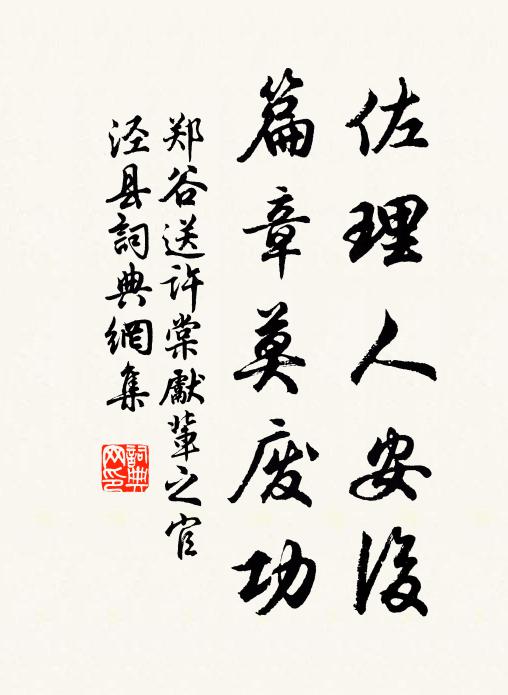 佐理人安後
篇章莫废功
郑谷送许棠獻輩之官
泾县詞典網集
詞典网印